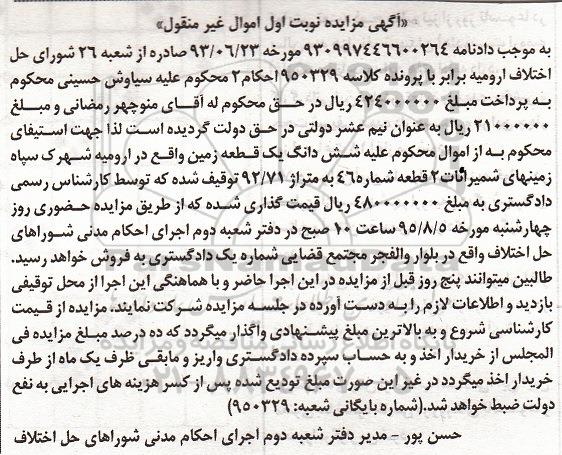 «آگهی مزایده نوبت اول اموال غیر منقول»
به موجب دادنامه ۹۳۰۹۹۷۴۴۶۶۰۰۲۶۴ مورخه ۹۳/۰۶/۲۳ صادره از شعبه ۲۶ شورای حل
اختلاف ارومیه برابر با پرونده کلاسه ۹۵۰۳۲۹احکام۲ محکوم علیه سیاوش حسینی محکوم
به پرداخت مبلغ ۴۲۴۰۰۰۰۰۰ ریال در حق محکوم له آقای منوچهر رمضانی و مبلغ
۲۱۰۰۰۰۰۰ ریال به عنوان نیم عشر دولتی در حق دولت گردیده است لذا جهت استیفای
محکوم به از اموال محکوم علیه شش دانگ یک قطعه زمین واقع در ارومیه شهرک سپاه
زمینهای شمیرانات۲ قطعه شماره۴۶ به متراژ ۹۲/۷۱ توقیف شده که توسط کارشناس رسمی
دادگستری به مبلغ ۴۸۰۰۰۰۰۰۰ ریال قیمت گذاری شده که از طریق مزایده حضوری روز
چهارشنبه مورخه ۹۵/۸/۵ ساعت ۱۰ صبح در دفتر شعبه دوم اجرای احکام مدنی شوراهای
حل اختلاف واقع در بلوار والفجر مجتمع قضایی شماره یک دادگستری به فروش خواهد رسید.
طالبین میتوانند پنج روز قبل از مزایده در این اجرا حاضر و با هماهنگی این اجرا از محل توقیفی
بازدید و اطلاعات لازم را به دست آورده در جلسه مزایده شرکت نمایند. مزایده از قیمت
کارشناسی شروع و به بالاترین مبلغ پیشنهادی واگذار میگردد که ده درصد مبلغ مزایده فی
المجلس از خریدار اخذ و به حساب سپرده دادگستری واریز و مابقی ظرف یک ماه از طرف
خریدار اخذ میگردد در غیر این صورت مبلغ تودیع شده پس از کسر هزینه های اجرایی به نفع
دولت ضبط خواهد شد.(شماره بایگانی شعبه: ۹۵۰۳۲۹)
حسن پور - مدیر دفتر شعبه دوم اجرای احکام مدنی شوراهای حل اختلاف